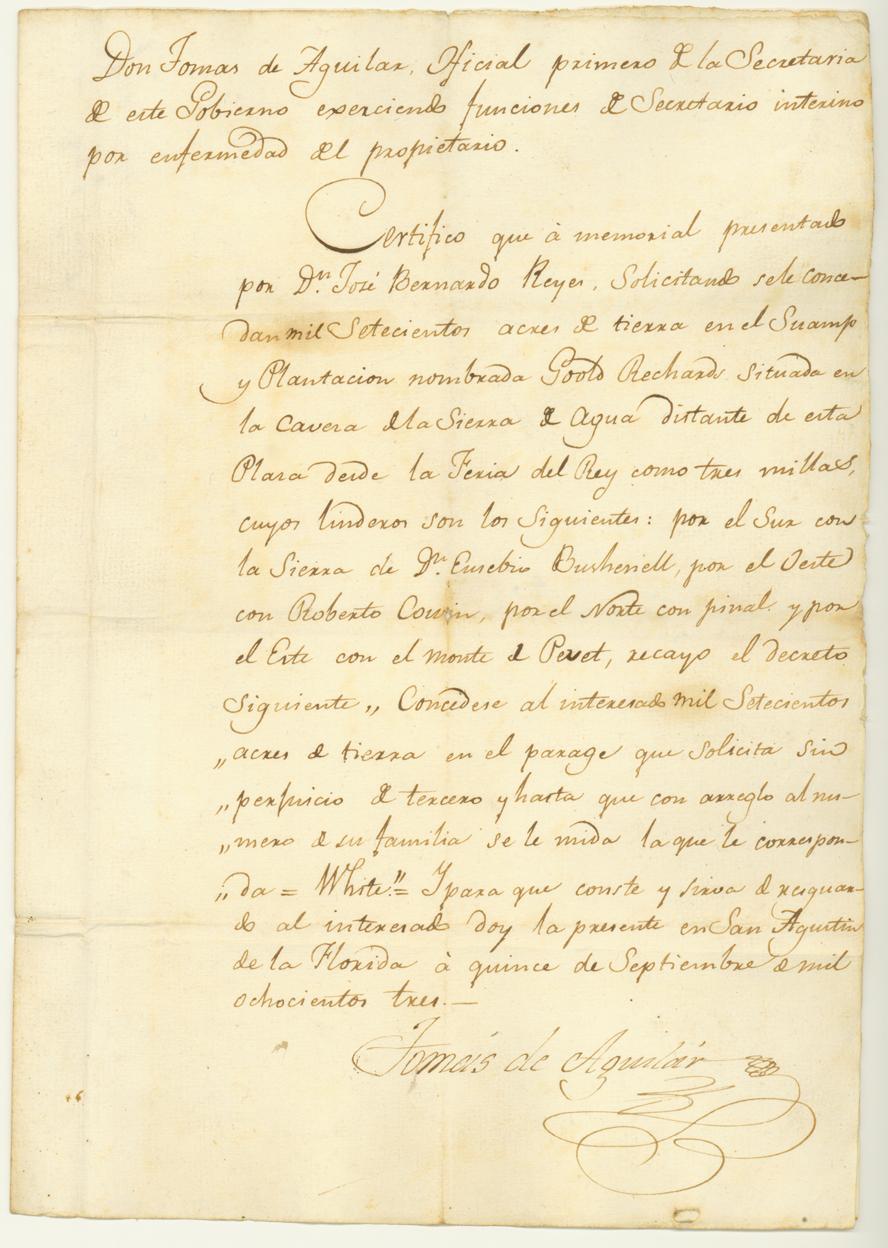 Don Tomas de Aguilar, Oficial primero de la Secretaria
de este Gobierno exerciendo funciones de Secretario interino
por enfermedad del propietario.
Certifico que à memorial presentado
por Dn. José Bernardo Reyes, Solicitando se le conce-
dan mil Setecientos acres de tierra en el Suamp
y Plantacion nombrada Goold Rechard situada en
la Cavera de la Sierra de Agua distante de esta
Plasa desde la Feria del Rey como tres millas,
cuyos linderos son los Siguientes: por el Sur con
la Sierra de Dn. Eusebio Bushenell, por el Oeste
con Roberto Cowin, por el Norte con pinal y por
el Este con el monte de Pevet, recayo el decreto
Siguiente „ Concedese al interesado mil Setecientos
„ acres de tierra en el parage que solicita sin
„ perjuicio de tercero y hasta que con arreglo al nu-
„ mero de su familia se le mida la que le correspon-
„ da = White." = Y para que conste y sirva de resguar-
do al interesado doy la presente en San Agustin
de la Florida à quince de Septiembre de mil
ochocientos tres.—
Tomás de Aguilár